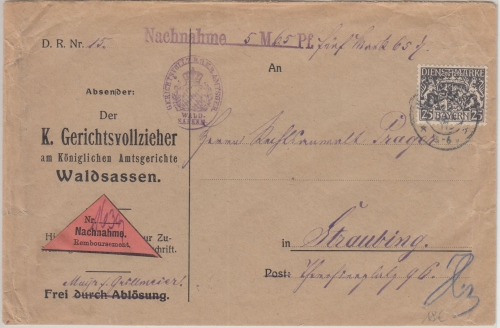 D. R. Nr. 15.
Nachnahme 5 M 65 Pf. fünf Mark 65
An
Absender:
Der
K. Gerichtsvollzieher
am Königlichen Amtsgerichte
Waldsassen.
DIENSTMARKE
25 BAYERN 25
WALD-
SASSEN
Herrn Rechtsanwalt Prager
Nr.
Nachnahme.
Remboursement.
in Straubing.
Post:
Frei durch Ablösung.